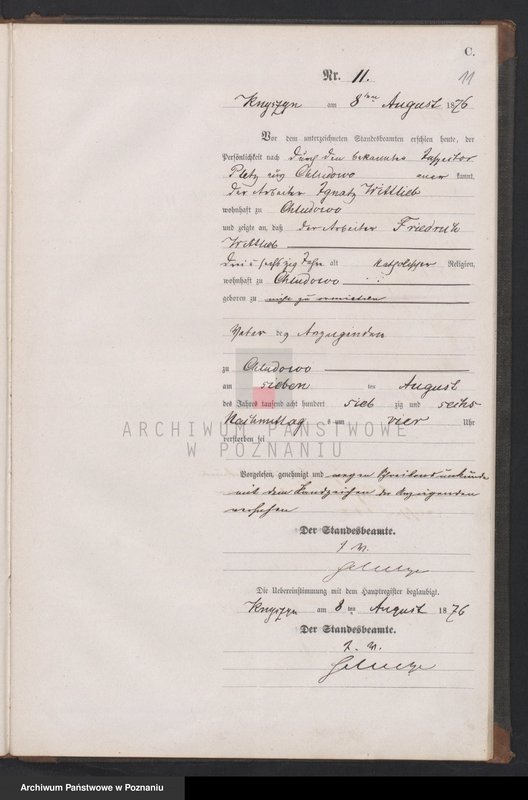 C.
11
Nr. 11.
Knyszyn am 8ten August 1876
Vor dem unterzeichneten Standesbeamten erschien heute, der
Persönlichkeit nach durch den bekannten Inspector
aus Chludowo kannt,
der Arbeiter Ignatz Wittlieb
wohnhaft zu Chludowo
und zeigte an, daß der Arbeiter Friedrich
Wittlieb
drei u sechszig Jahr alt katholischer Religion,
wohnhaft zu Chludowo
geboren zu nicht zu ermitteln
Vater des Anzeigenden
zu Chludowo
am sieben ten August
des Jahres tausend acht hundert sieb zig und sechs
Nachmittag s um vier Uhr
verstorben sei
ARCHIWUM PAŃSTWOWE
W POZNANIU
Vorgelesen, genehmigt und wegen Schreibensunkunde
mit dem Handzeichen des Anzeigenden
versehen
Der Standesbeamte.
Die Uebereinstimmung mit dem Hauptregister beglaubigt.
Knyszyn am 8 ten August 1876
Der Standesbeamte.
Archiwum Państwowe w Poznaniu